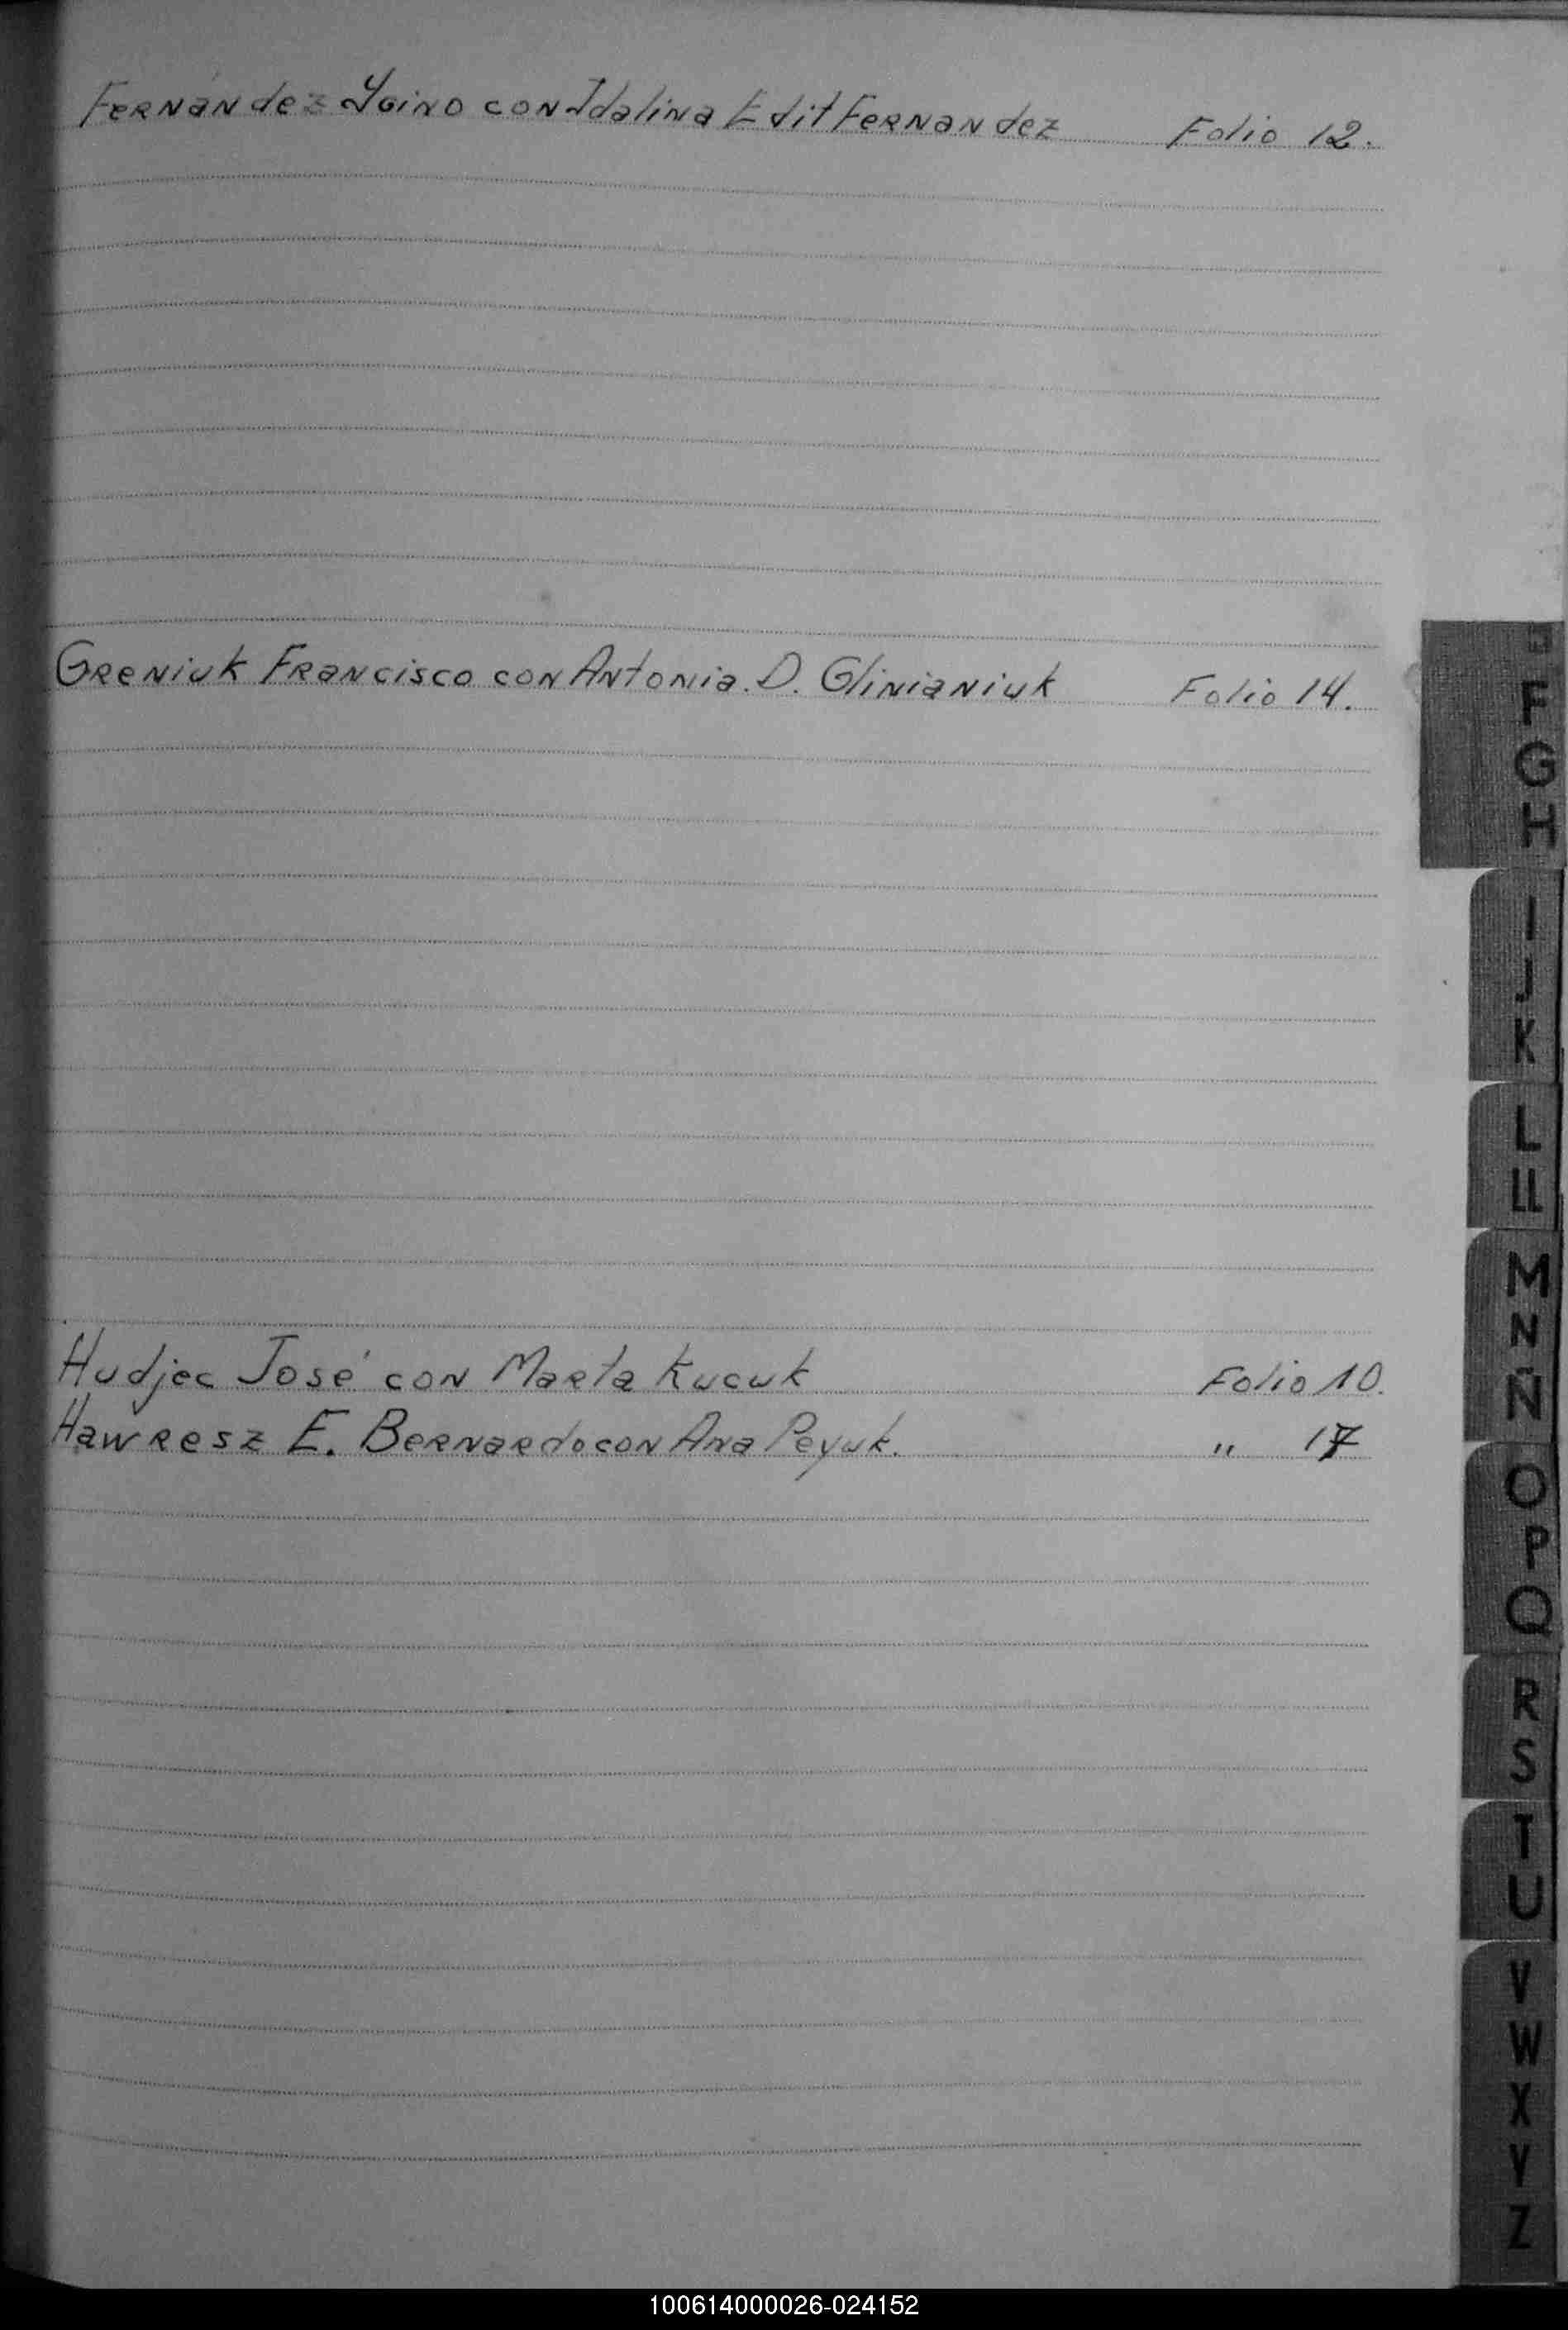 Fernández Ygino con Idalina Edit Fernandez Folio 12.
Greniuk Francisco con Antonia. D. Glinianiuk Folio 14.
Hudjec José con Marta Kucuk Folio 10.
Hawresz E. Bernardo con Ana Peyuk. " 17
F
G
H
I
J
K
L
Ll
M
N
Ñ
O
P
Q
R
S
T
U
V
W
X
Y
Z
100614000026-024152